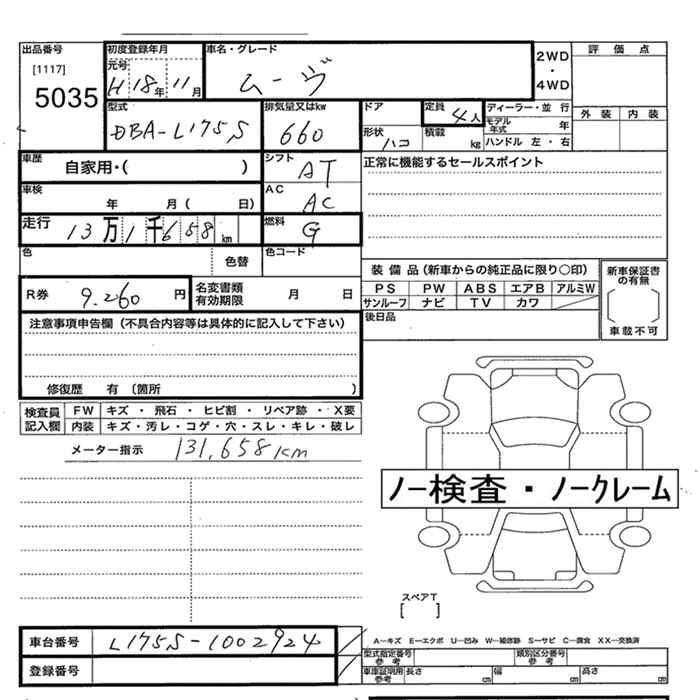 出品番号 初度登録年月 車名・グレード 評価点
[1117] 元号 2WD
5035 H 18年 11月 ムーヴ ・
4WD
型式 排気量又はkw ドア 定員 ディーラー・並行 外装 内装
DBA-L175S 660 4人 モデル年式 年
形状 ハコ 積載 kg ハンドル 左・右
車歴 自家用・( ) シフト AT 正常に機能するセールスポイント
車検 年 月( 日) AC AC
走行 13万1千658km 燃料 G
色 色替 色コード
装備品(新車からの純正品に限り○印) 新車保証書の有無
R券 9.260円 名変書類有効期限 月 日 PS PW ABS エアB アルミW
サンルーフ ナビ TV カワ
注意事項申告欄(不具合内容等は具体的に記入して下さい) 後日品 車載不可
修復歴 有(箇所 )
検査員記入欄 FW キズ・飛石・ヒビ割・リペア跡・X要
内装 キズ・汚レ・コゲ・穴・スレ・キレ・破レ
メーター指示 131,658km
ノー検査・ノークレーム
スペアT
[ ]
車台番号 L175S-1002924 A―キズ E―エクボ U―凹み W―補修跡 S―サビ C―腐食 XX―交換済
型式指定番号参考 類別区分番号参考
登録番号 車庫証明用参考 長さ cm 幅 cm 高さ cm